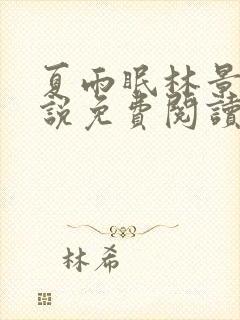 夏雨眠林景
說免費閱讀
林希